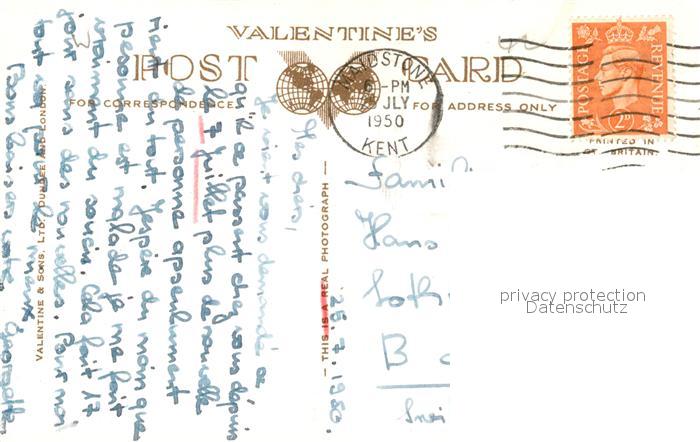 VALENTINE'S
POST CARD
FOR CORRESPONDENCE
FOR ADDRESS ONLY
MAIDSTONE
6-PM
JLY
1950
KENT
POSTAGE
REVENUE
2D
PRINTED IN
GT. BRITAIN
VALENTINE & SONS, LTD. DUNDEE AND LONDON
THIS IS A REAL PHOTOGRAPH
25.7.1950.
Mes chers,
Je viens vous demander ce
qu'il se passent chez vous depuis
le 7 juillet plus de nouvelle
de personne absolument
rien du tout. J'espère du moins que
personne est malade ça me fait
du souci. Cela fait 17
jour sans des nouvelles. Pour moi
tout va pour le mieux
Bons baisers votre Georgette
Fami
Hans
Loth
B
privacy protection
Datenschutz